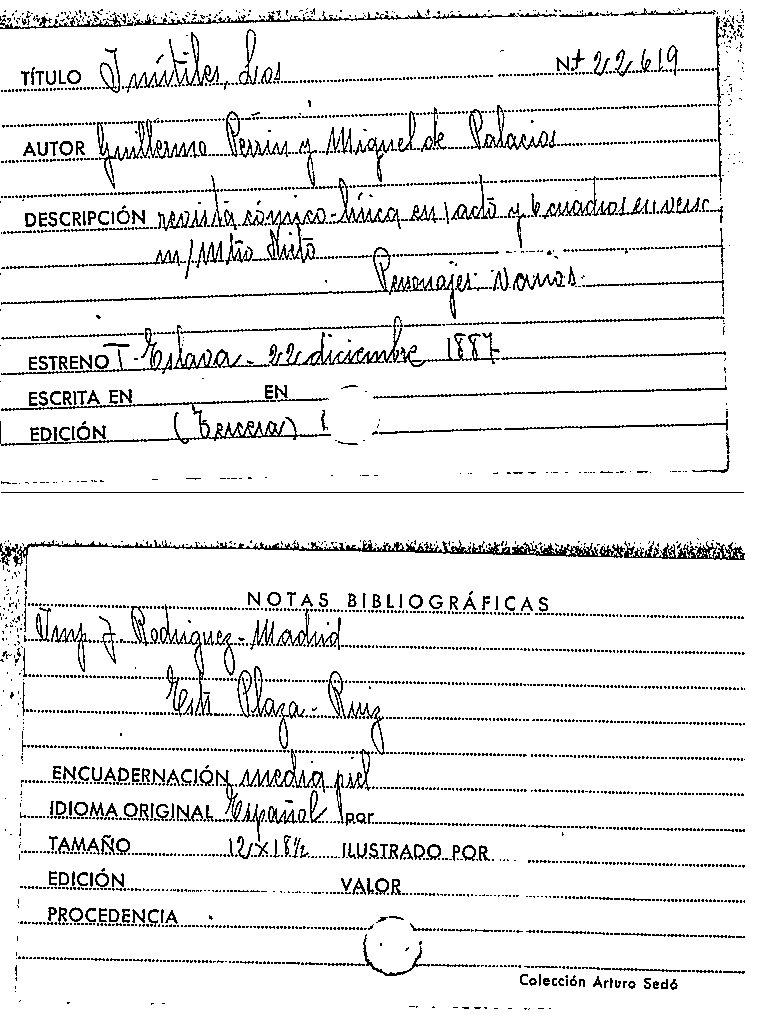 TÍTULO Inútiles, Los Nº 22619
AUTOR Guillermo Perrin y Miguel de Palacios
DESCRIPCIÓN revista cómico-lírica en 1 acto y 6 cuadros en verso
m/ Mtro Nieto
Personajes: Varios.
ESTRENO T. Eslava - 22 diciembre 1887
ESCRITA EN EN
EDICIÓN (Tercera)
NOTAS BIBLIOGRÁFICAS
Imp J. Rodriguez - Madrid
Plaza - Ruiz
ENCUADERNACIÓN media piel
IDIOMA ORIGINAL Español por
TAMAÑO 12x18½ ILUSTRADO POR
EDICIÓN VALOR
PROCEDENCIA
Colección Arturo Sedó